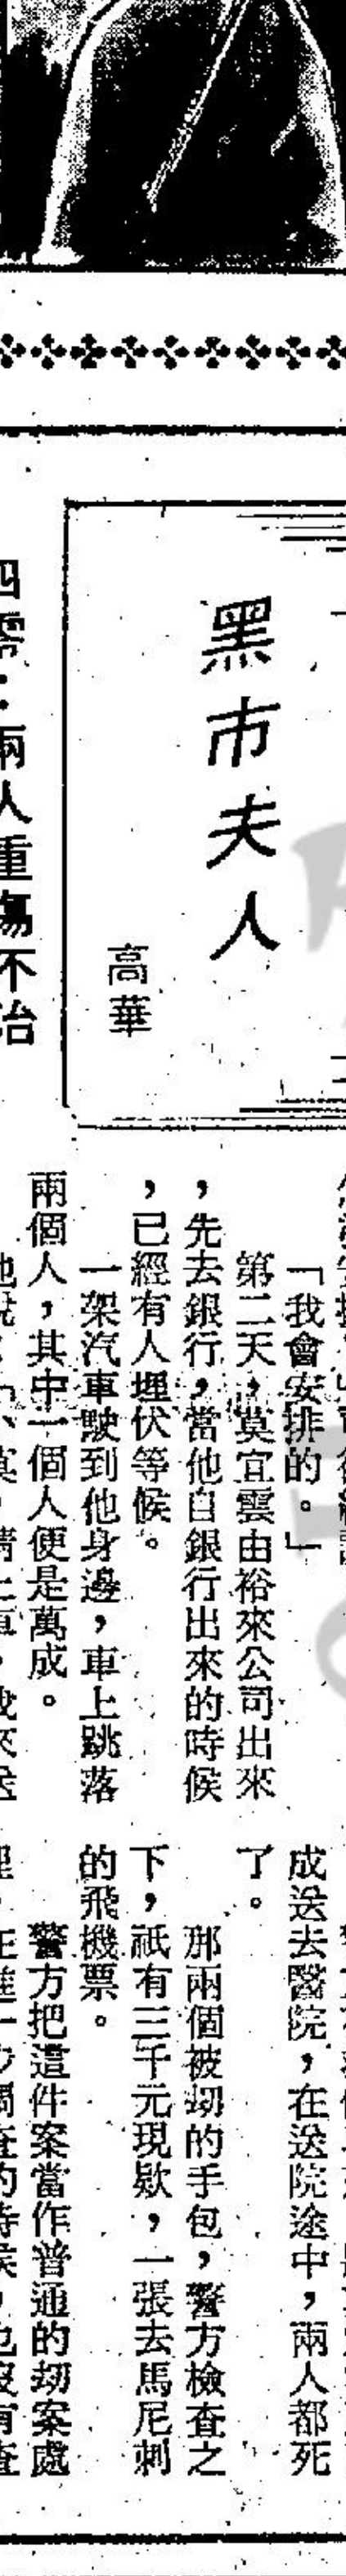 黑市夫人
高華
「我會安排的。」
第二天，莫宜雲由裕來公司出來
，先去銀行，當他自銀行出來的時候
，已經有人埋伏等候。
一架汽車駛到他身邊，車上跳落
兩個人，其中一個人便是萬成。
成送去醫院，在送院途中，兩人都死
了。
那兩個被刼的手包，警方檢查之
下，祇有三千元現欵，一張去馬尼剌
的飛機票。
警方把這件案當作普通的刼案處
兩人重傷不治